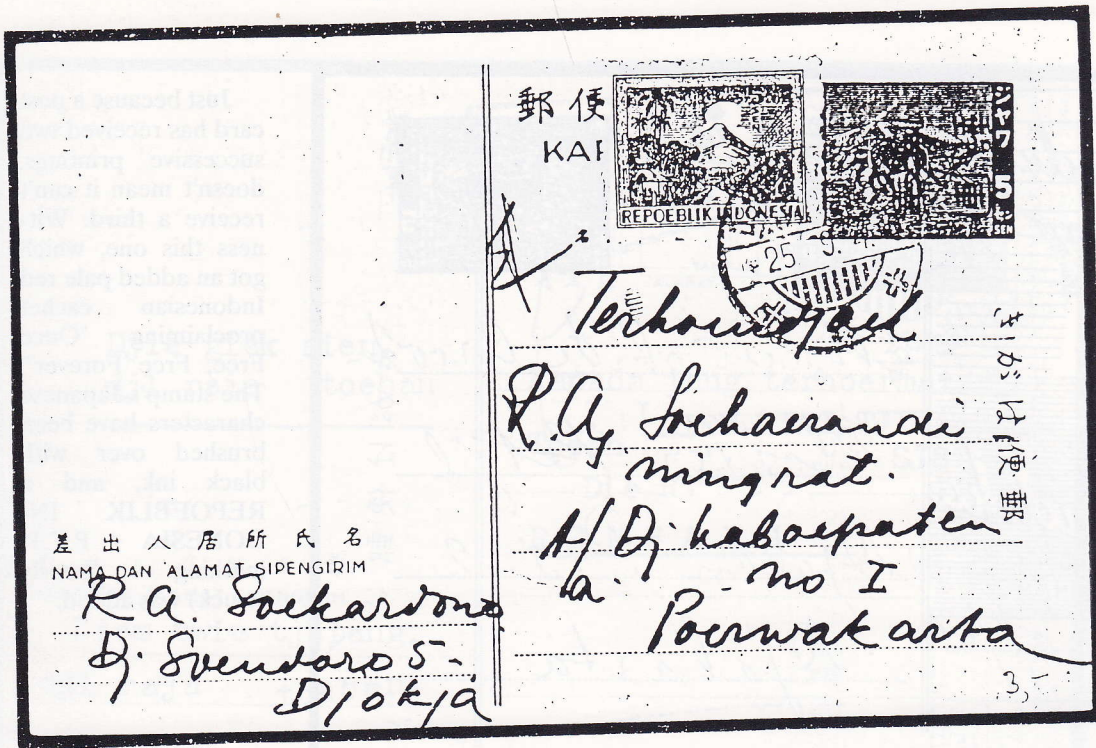 郵便
KAR
REPOEBLIK INDONESIA
ジャワ
5
セン
25
Terhoendjoek
R. Ay Soehaerandi
ningrat.
A/ Dj kaboepaten
a. no I
Poerwakarta
きがは便郵
差出人居所氏名
NAMA DAN ALAMAT SIPENGIRIM
R.a. Soekardono
Dj. Soendoro 5.
Djokja